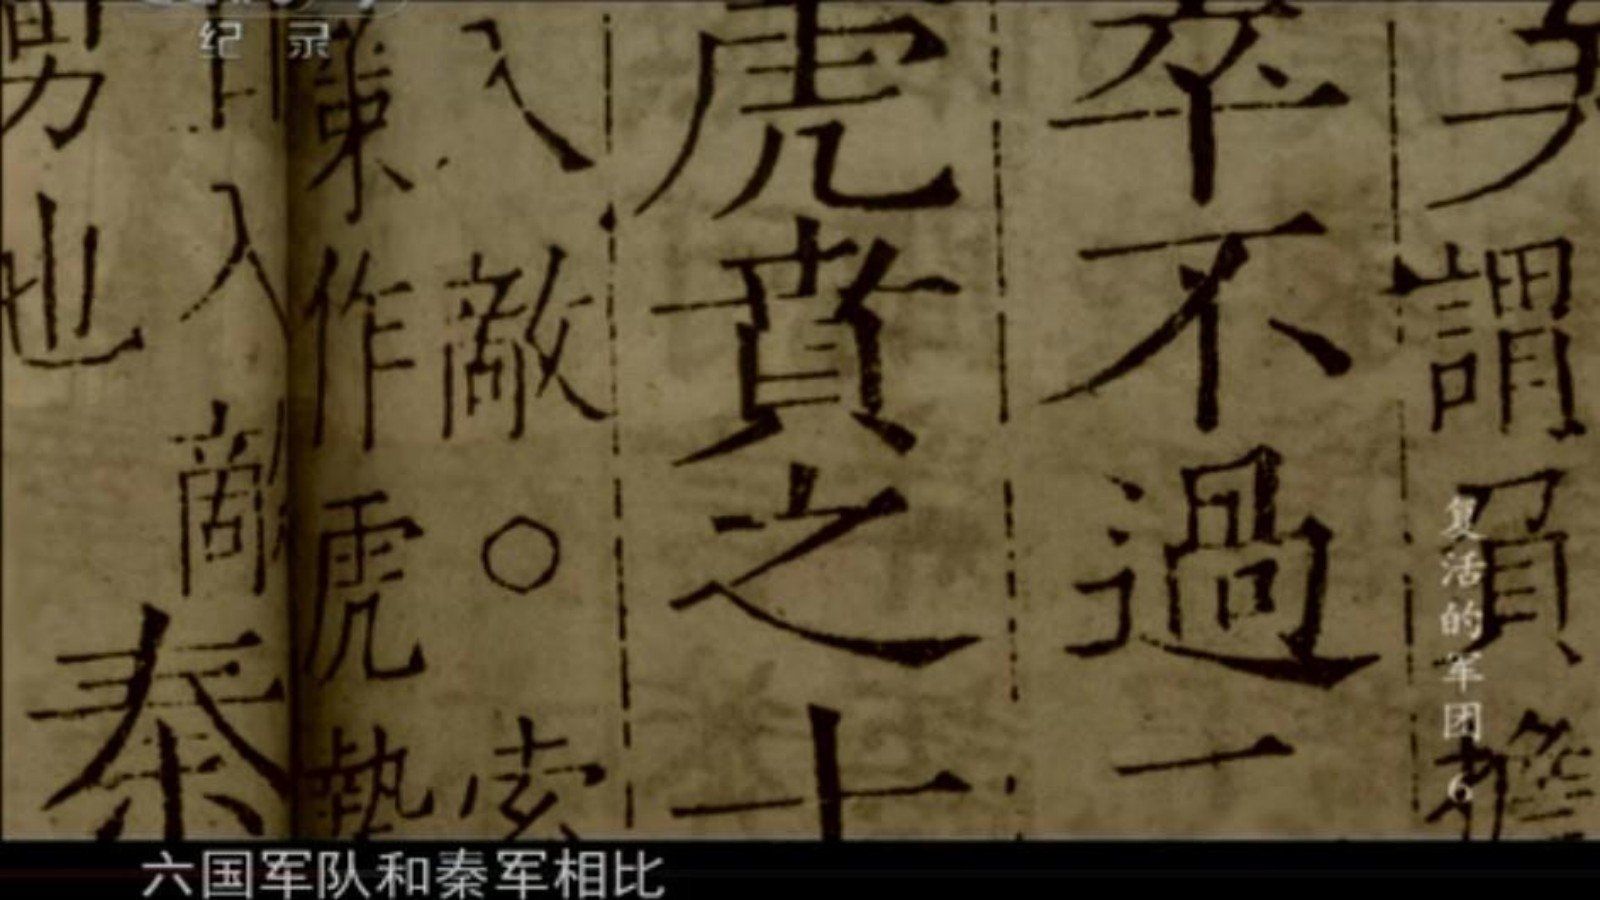 纪录
謂負擔
卒不過一
虎賁之士
入敵○索
策作虎勢
入敵
秦
男也
复活的军团 6
六国军队和秦军相比